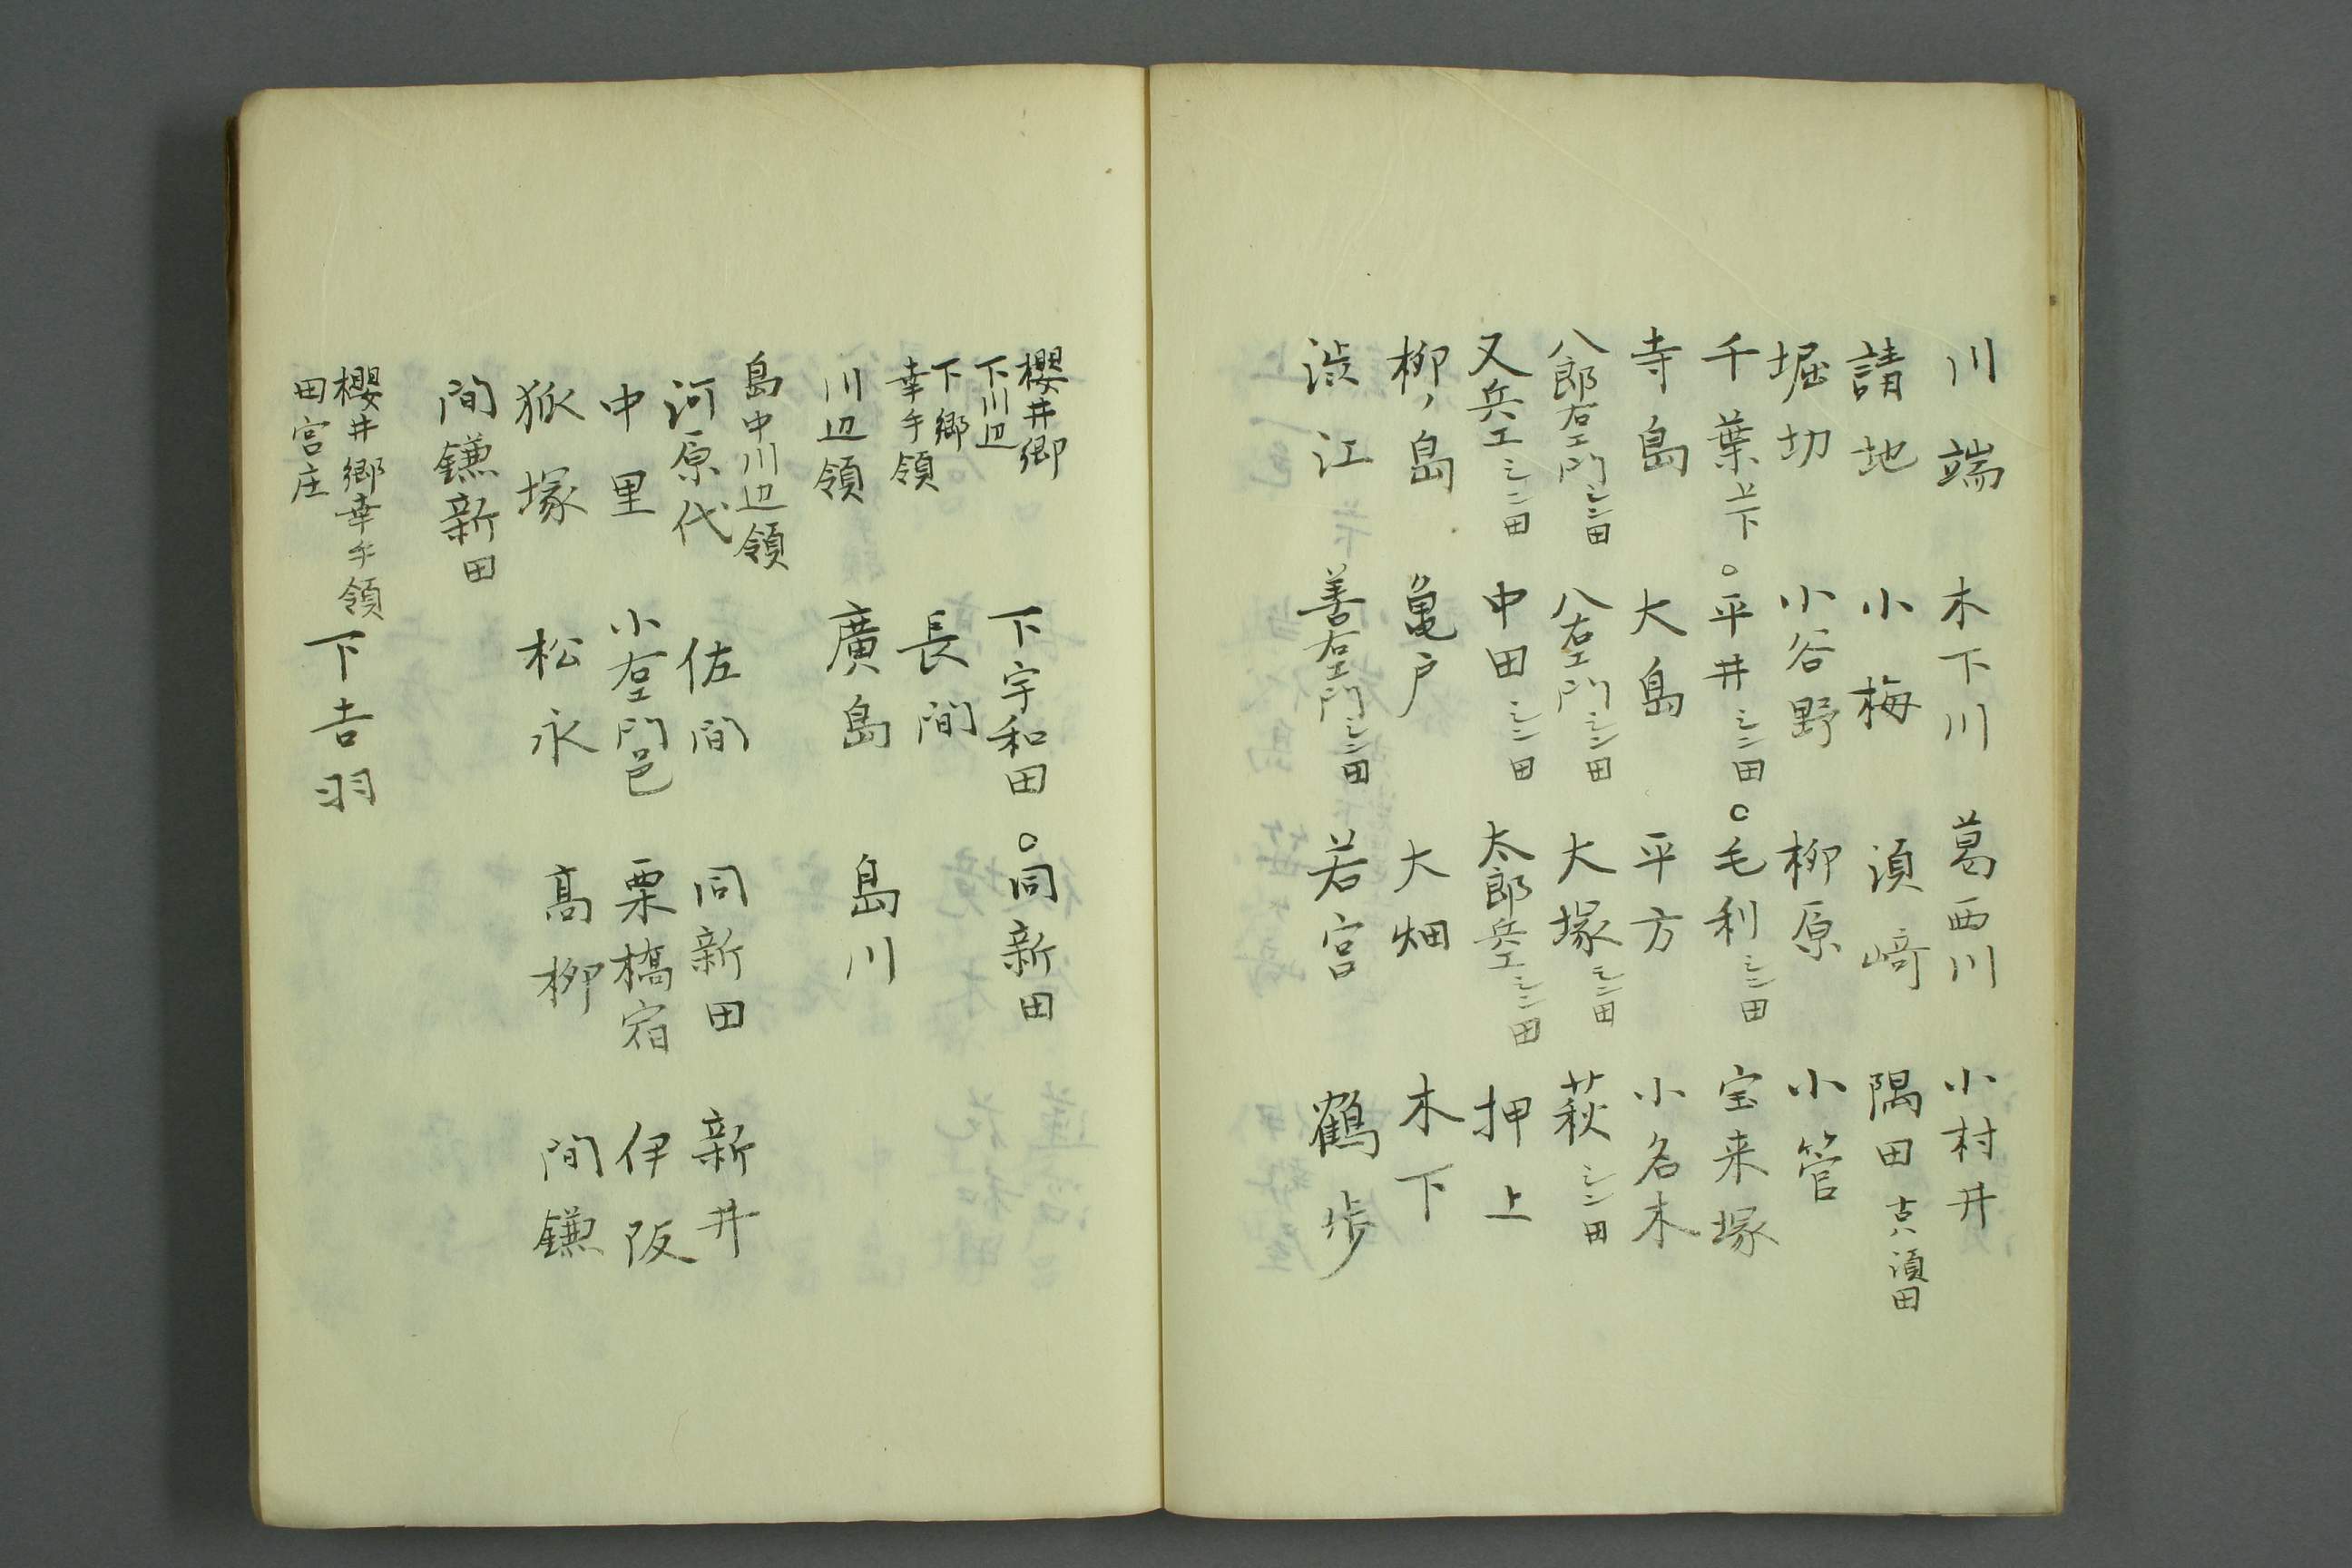 川端 木下川 葛西川 小村井
請地 小梅 湏﨑 隅田 古ハ湏田
堀切 小谷野 柳原 小管
千葉上下 。平井シン田 。毛利シン田 宝来塚
寺島 大島 平方 小名木
八郎右エ門シン田 八右エ門シン田 大塚シン田 萩シン田
又兵エシン田 中田シン田 太郎兵エシン田 押上
柳ノ島 亀戸 大畑 木下
渋江 善右エ門シン田 若宮 鶴歩
櫻井郷
下川辺 下宇和田 。同新田
下郷
幸手領 長間
川辺領 廣島 島川
島中川辺領
河原代 佐間 同新田 新井
中里 小右エ門邑 栗橋宿 伊阪
狐塚 松永 髙柳 間鎌
間鎌新田
櫻井郷幸手領
田宮庄 下吉羽